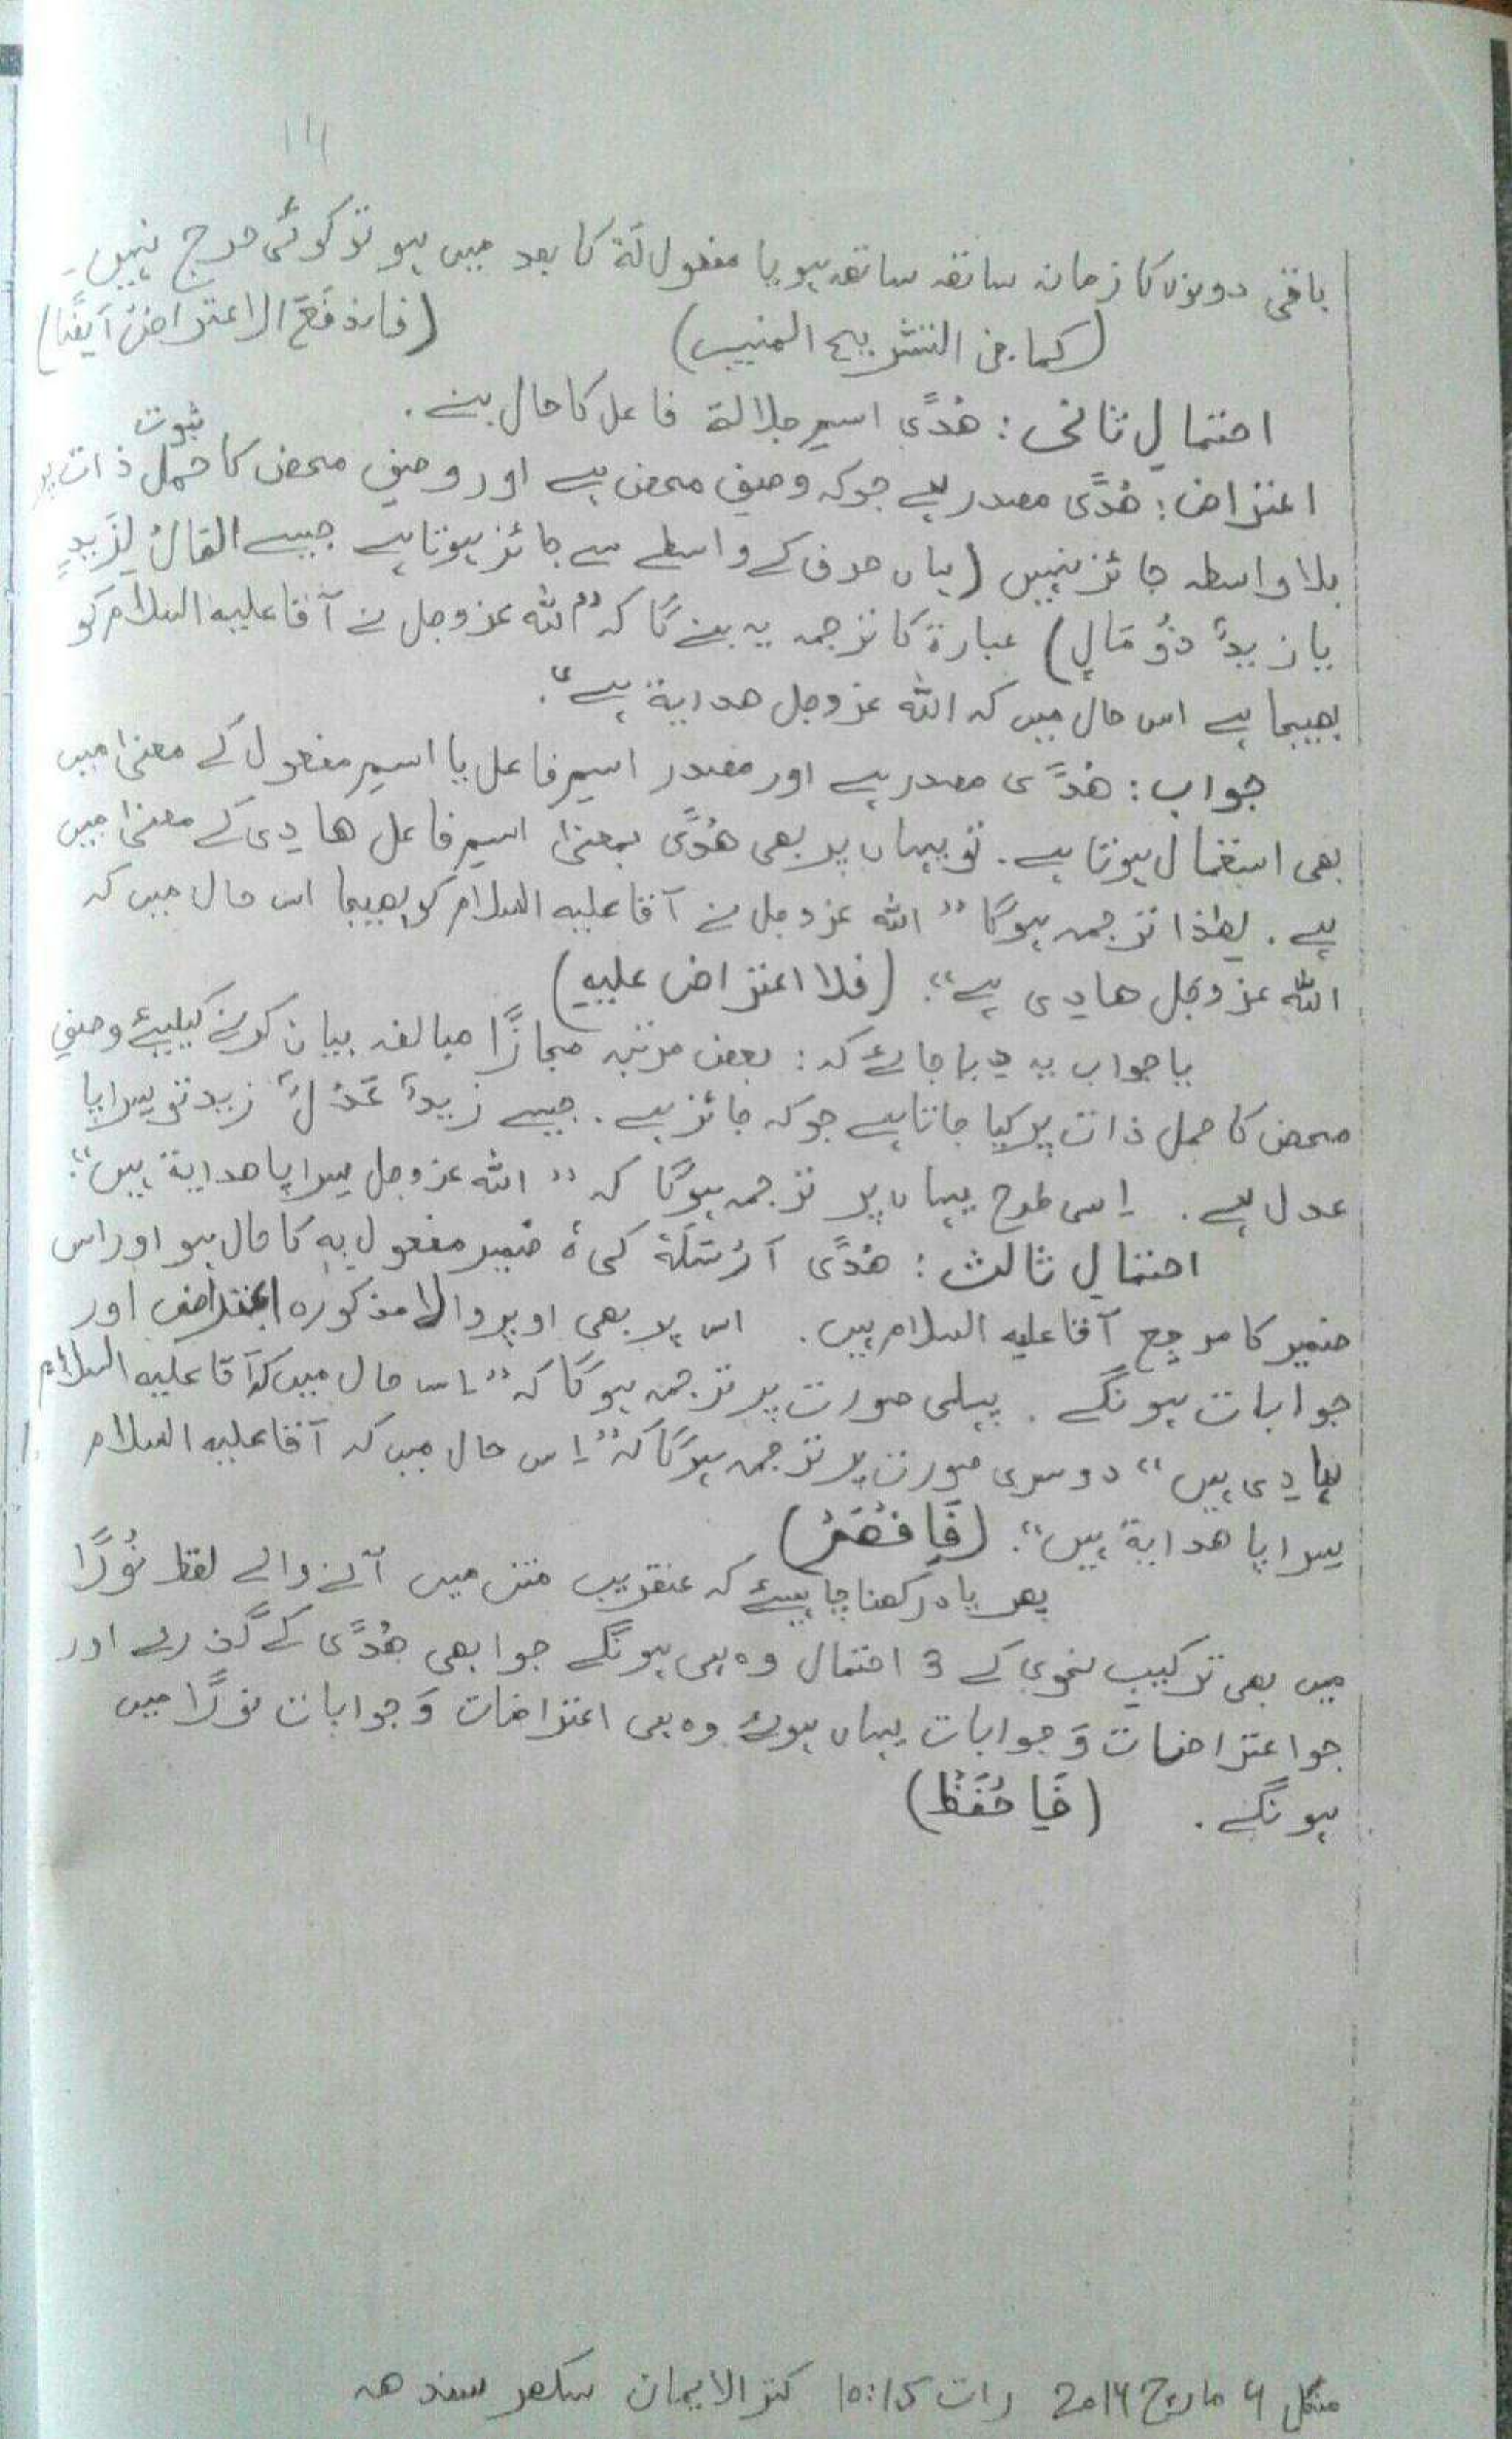 باقی دونوں کا زمانہ ساتھ ساتھ ہو یا مفعول لَهٗ کا بعد میں ہو تو کوئی حرج نہیں۔
(کما فی التشریح المنیب) (فاندفَعَ الاعتراضُ اَیضًا)
احتمالِ ثانی : ھُدًی اسمِ جلالة فاعل کا حال بنے .
ثبوت
اعتراض : ھُدًی مصدر ہے جو کہ وصفِ محض ہے اور وصفِ محض کا حمل ذات پر
بلا واسطہ جائز نہیں (ہاں حرف کے واسطے سے جائز ہوتا ہے جیسے المَالُ لِزَیدٍ
یا زیدٌ ذُوْ مَالٍ) عبارة کا ترجمہ یہ بنے گا کہ "اللہ عزوجل نے آقا علیہ السلام کو
بھیجا ہے اس حال میں کہ اللہ عزوجل ھدایة ہے".
جواب : ھُدًی مصدر ہے اور مصدر اسمِ فاعل یا اسمِ مفعول کے معنیٰ میں
بھی استعمال ہوتا ہے . تو یہاں پر بھی ھُدًی بمعنیٰ اسمِ فاعل ھادِی کے معنیٰ میں
ہے . لھٰذا ترجمہ ہوگا " اللہ عزوجل نے آقا علیہ السلام کو بھیجا اس حال میں کہ
اللہ عزوجل ھادِی ہے". (فلا اعتراض علیهِ)
یا جواب یہ دِیا جائے کہ : بعض مرتبہ مجازًا مبالغہ بیان کرنے کیلیئے وصفِ
محض کا حمل ذات پر کیا جاتا ہے جو کہ جائز ہے . جیسے زیدٌ عَدْلٌ زید تو سراپا
عدل ہے . اِسی طرح یہاں پر ترجمہ ہوگا کہ " اللہ عزوجل سراپا ھدایة ہیں".
احتمالِ ثالث : ھُدًی اَرْسَلَهٗ کی ہٗ ضمیر مفعول بِہٖ کا حال ہو اور اس
ضمیر کا مرجِع آقا علیہ السلام ہیں . اس پر بھی اوپر والا مذکورہ اعتراض اور
جوابات ہونگے . پہلی صورت پر ترجمہ ہوگا کہ "اس حال میں کہ آقا علیہ السلام
ہادِی ہیں" دوسری صورت پر ترجمہ ہوگا کہ "اِس حال میں کہ آقا علیہ السلام
سراپا ھدایة ہیں". (فَافْھَمْ)
پھر یاد رکھنا چاہیئے کہ عنقریب متن میں آنے والے لفظ نُوْرًا
میں بھی ترکیبِ نحوی کے 3 احتمال وہ ہی ہونگے جو ابھی ھُدًی کے گذرے اور
جو اعتراضات وَ جوابات یہاں ہوئے وہ ہی اعتراضات وَ جوابات نورًا میں
ہونگے . (فَاحْفَظْ)
منگل 4 مارچ 2014 رات 10:15 کنز الایمان سکھر سندھ